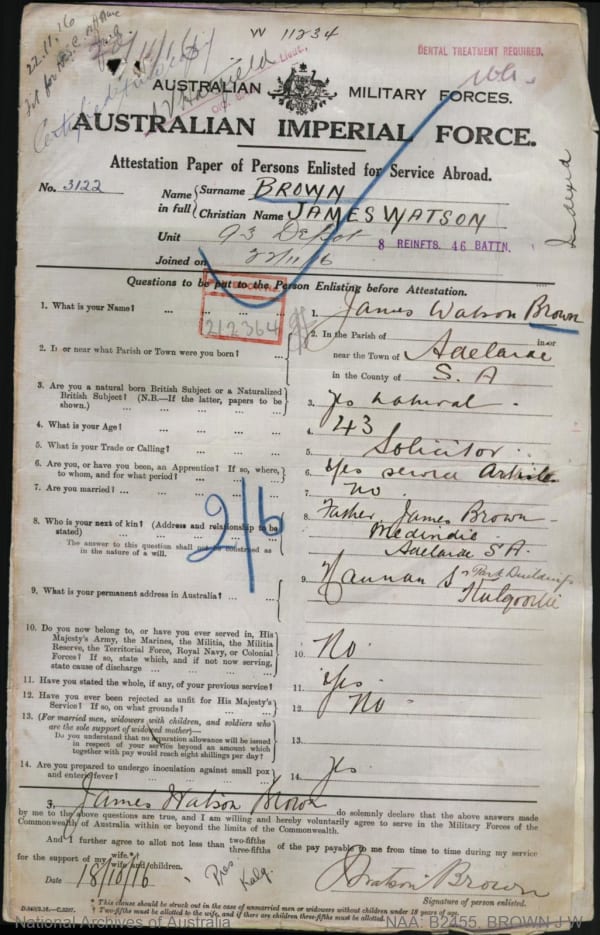 W 11234
22.11.16
DENTAL TREATMENT REQUIRED.
AUSTRALIAN MILITARY FORCES.
AUSTRALIAN IMPERIAL FORCE.
Attestation Paper of Persons Enlisted for Service Abroad.
No. 3122
Name in full { Surname BROWN
Christian Name JAMES WATSON
Unit 93 Depot 8 REINFTS. 46 BATTN.
Joined on 22/11/16
Indexed
Questions to be put to the Person Enlisting before Attestation.
212364
1. What is your Name? ... ... ... 1. James Watson Brown
2. In or near what Parish or Town were you born? ... 2. In the Parish of in or
near the Town of Adelaide
in the County of S. A
3. Are you a natural born British Subject or a Naturalized
British Subject? (N.B.—If the latter, papers to be
shown.) ... ... ... ... 3. Yes natural
4. What is your Age? ... ... ... 4. 43
5. What is your Trade or Calling? ... ... 5. Solicitor
6. Are you, or have you been, an Apprentice? If so, where,
to whom, and for what period? ... ... 6. Yes served Articles
7. Are you married? ... ... ... ... 7. No
8. Who is your next of kin? (Address and relationship to be
stated) ... ... ... 8. Father James Brown
Medindie
Adelaide S.A.
The answer to this question shall not be construed as
in the nature of a will.
2/6
9. What is your permanent address in Australia? ... ... 9. Hannan St Park Buildings
Kalgoorlie
10. Do you now belong to, or have you ever served in, His
Majesty's Army, the Marines, the Militia, the Militia
Reserve, the Territorial Force, Royal Navy, or Colonial
Forces? If so, state which, and if not now serving,
state cause of discharge ... ... ... 10. No
11. Have you stated the whole, if any, of your previous service? 11. Yes
12. Have you ever been rejected as unfit for His Majesty's
Service? If so, on what grounds? ... ... 12. No
13. (For married men, widowers with children, and soldiers who
are the sole support of widowed mother)—
Do you understand that no separation allowance will be issued
in respect of your service beyond an amount which
together with pay would reach eight shillings per day? 13.
14. Are you prepared to undergo inoculation against small pox
and enteric fever? ... ... ... 14. Yes
I, James Watson Brown do solemnly declare that the above answers made
by me to the above questions are true, and I am willing and hereby voluntarily agree to serve in the Military Forces of the
Commonwealth of Australia within or beyond the limits of the Commonwealth.
And I further agree to allot not less than two-fifths three-fifths of the pay payable to me from time to time during my service
for the support of my wife.* wife and children.
Date 18/10/16 Kalg. J Watson Brown
Signature of person enlisted.
* This clause should be struck out in the case of unmarried men or widowers without children under 18 years of age.
† Two-fifths must be allotted to the wife, and if there are children three-fifths must be allotted.
National Archives of Australia NAA: B2455, BROWN J W